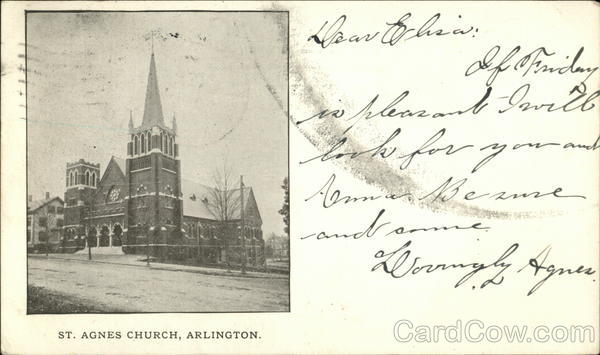 Dear Eliza:
If Friday
is pleasant I will
look for you and
Anna. Be sure
and come.
Lovingly, Agnes.
ST. AGNES CHURCH, ARLINGTON.
CardCow.com